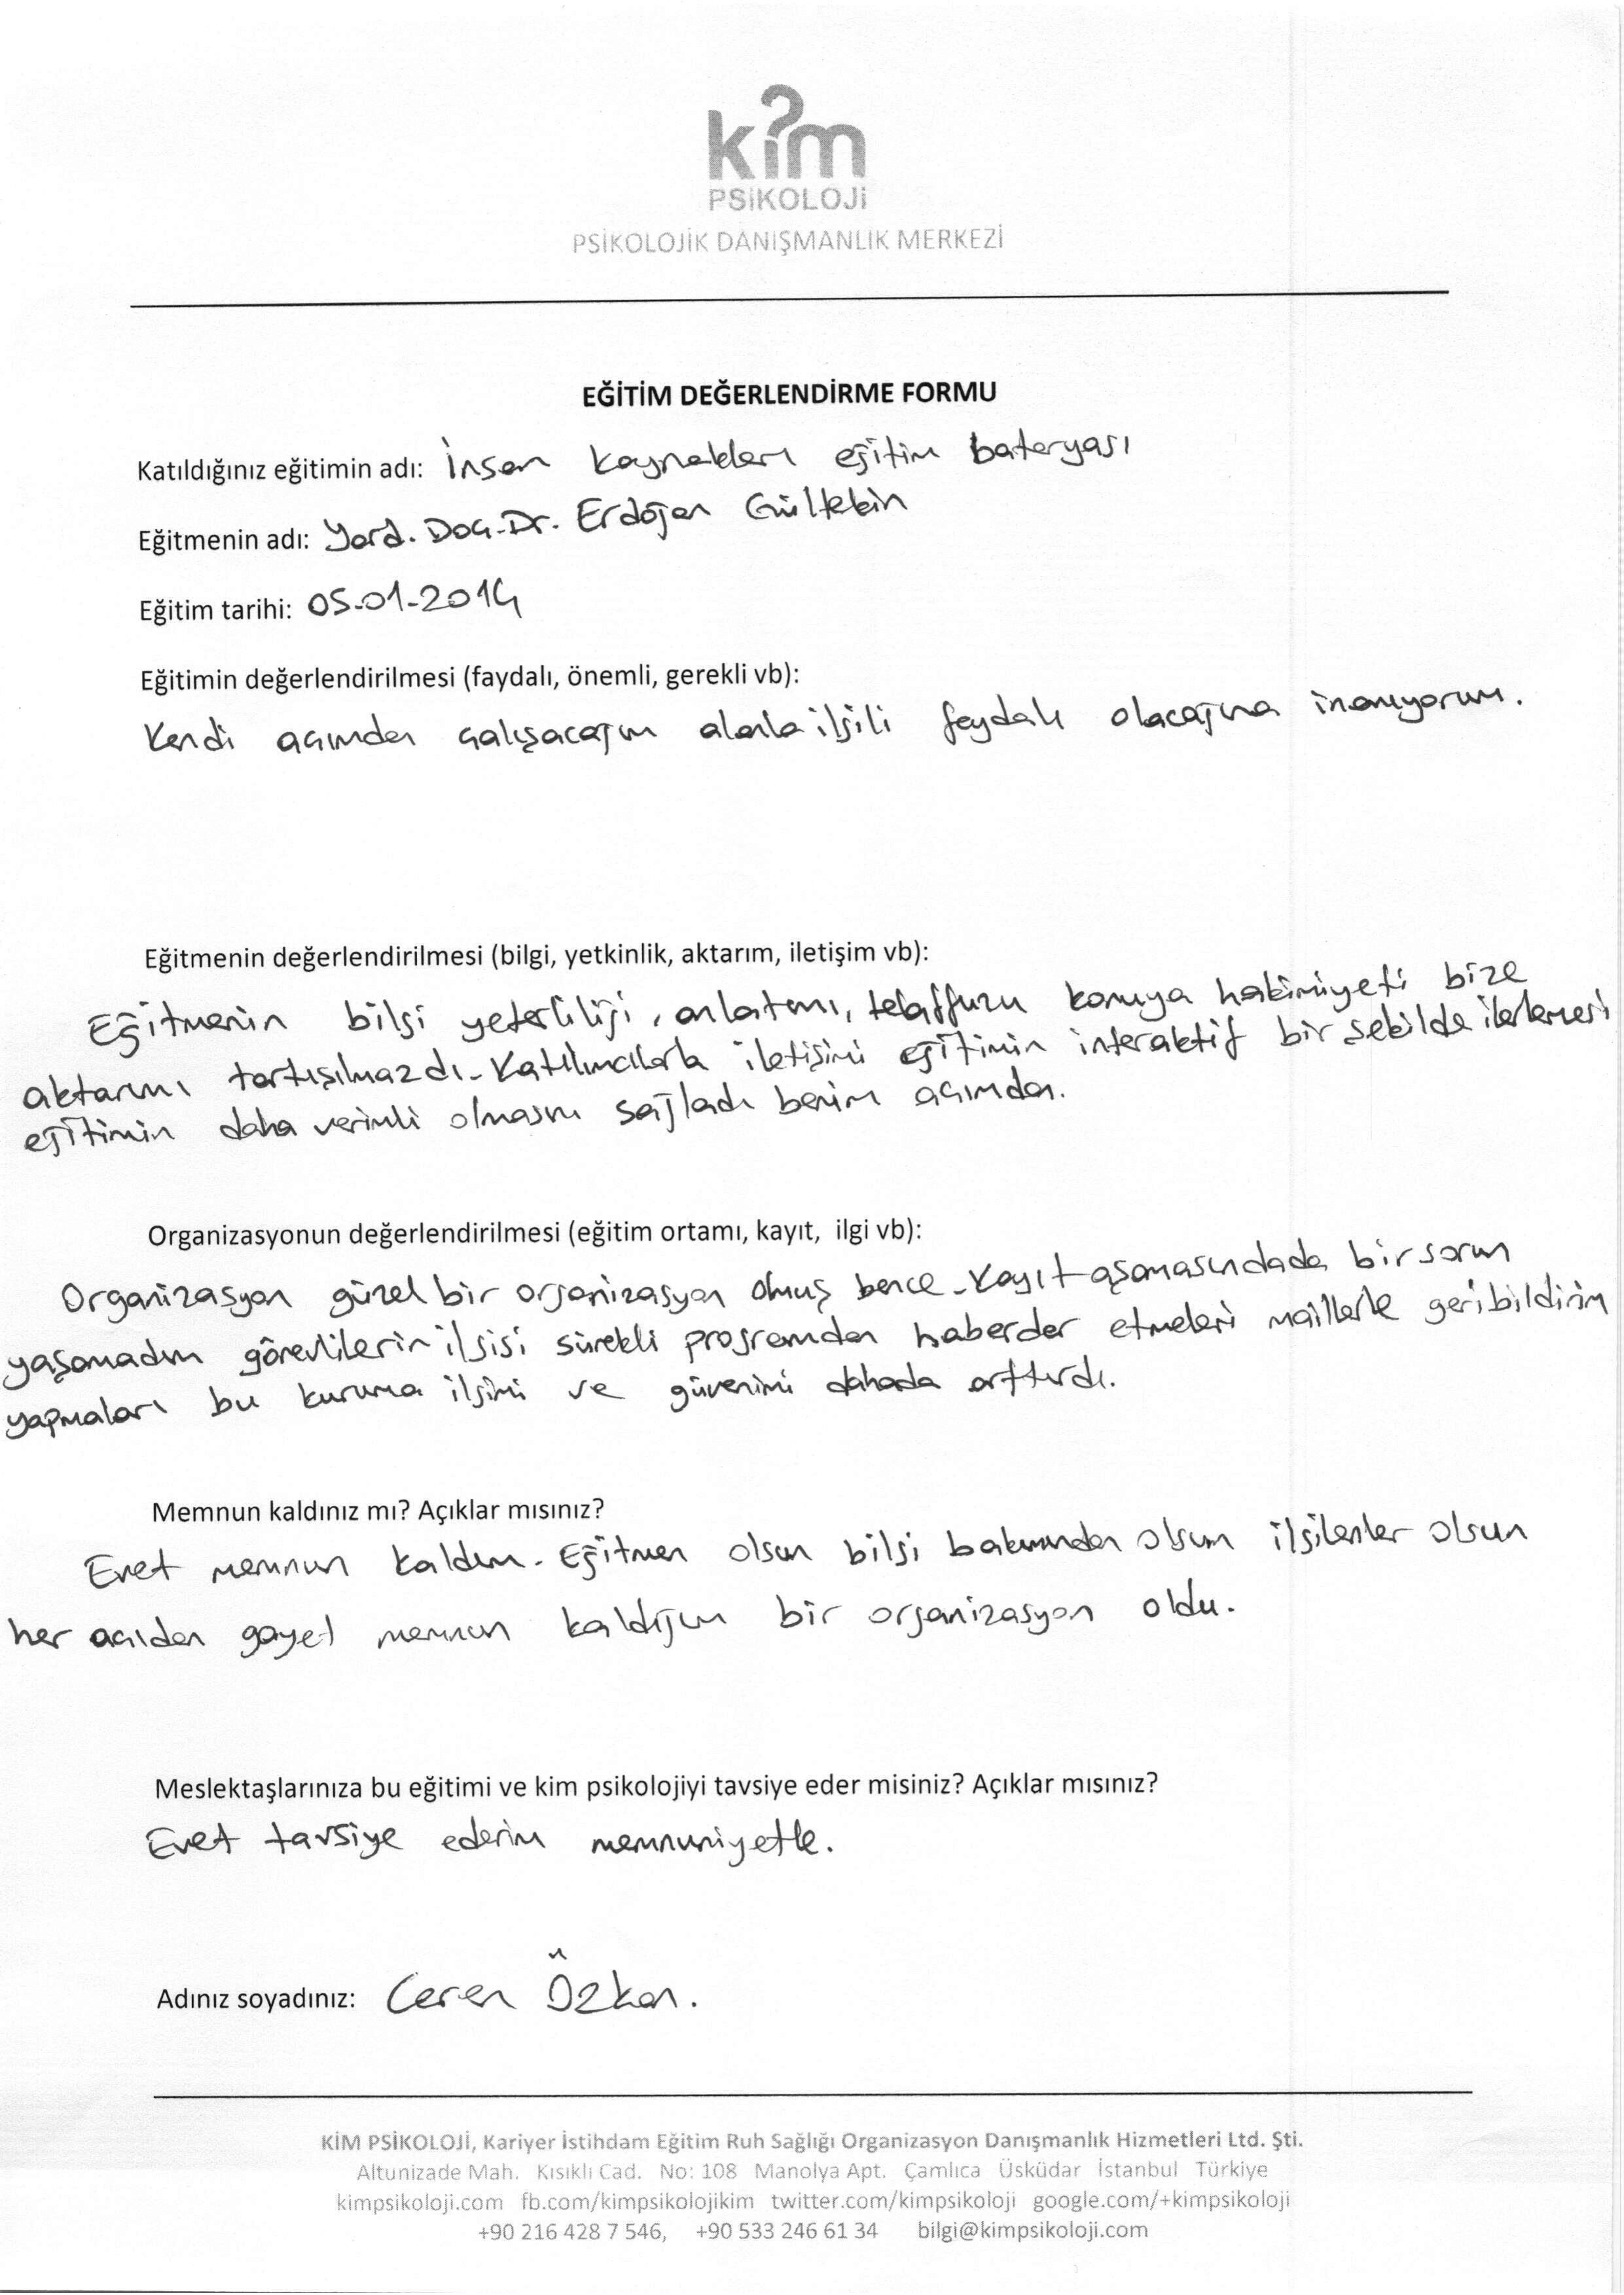 kim
PSİKOLOJİ
PSİKOLOJİK DANIŞMANLIK MERKEZİ
EĞİTİM DEĞERLENDİRME FORMU
Katıldığınız eğitimin adı: İnsan kaynakları eğitim bateryası
Eğitmenin adı: Yard. Doç. Dr. Erdoğan Gültekin
Eğitim tarihi: 05-01-2014
Eğitimin değerlendirilmesi (faydalı, önemli, gerekli vb):
Kendi açımdan çalışacağım alanla ilgili faydalı olacağına inanıyorum.
Eğitmenin değerlendirilmesi (bilgi, yetkinlik, aktarım, iletişim vb):
Eğitmenin bilgi yeterliliği, anlatımı, telaffuzu konuya hakimiyeti bize
aktarımı tartışılmazdı. Katılımcılarla iletişimi eğitimin interaktif bir şekilde ilerlemesi
eğitimin daha verimli olmasını sağladı benim açımdan.
Organizasyonun değerlendirilmesi (eğitim ortamı, kayıt, ilgi vb):
Organizasyon güzel bir organizasyon olmuş bence. Kayıt aşamasındada bir sorun
yaşamadım görevlilerin ilgisi sürekli programdan haberdar etmeleri maillerle geribildirim
yapmaları bu kuruma ilgimi ve güvenimi dahada arttırdı.
Memnun kaldınız mı? Açıklar mısınız?
Evet memnun kaldım. Eğitmen olsun bilgi bakımından olsun ilgilenler olsun
her açıdan gayet memnun kaldığım bir organizasyon oldu.
Meslektaşlarınıza bu eğitimi ve kim psikolojiyi tavsiye eder misiniz? Açıklar mısınız?
Evet tavsiye ederim memnuniyetle.
Adınız soyadınız: Ceren Özkan.
KİM PSİKOLOJİ, Kariyer İstihdam Eğitim Ruh Sağlığı Organizasyon Danışmanlık Hizmetleri Ltd. Şti.
Altunizade Mah. Kısıklı Cad. No: 108 Manolya Apt. Çamlıca Üsküdar İstanbul Türkiye
kimpsikoloji.com fb.com/kimpsikolojikim twitter.com/kimpsikoloji google.com/+kimpsikoloji
+90 216 428 7 546, +90 533 246 61 34 bilgi@kimpsikoloji.com